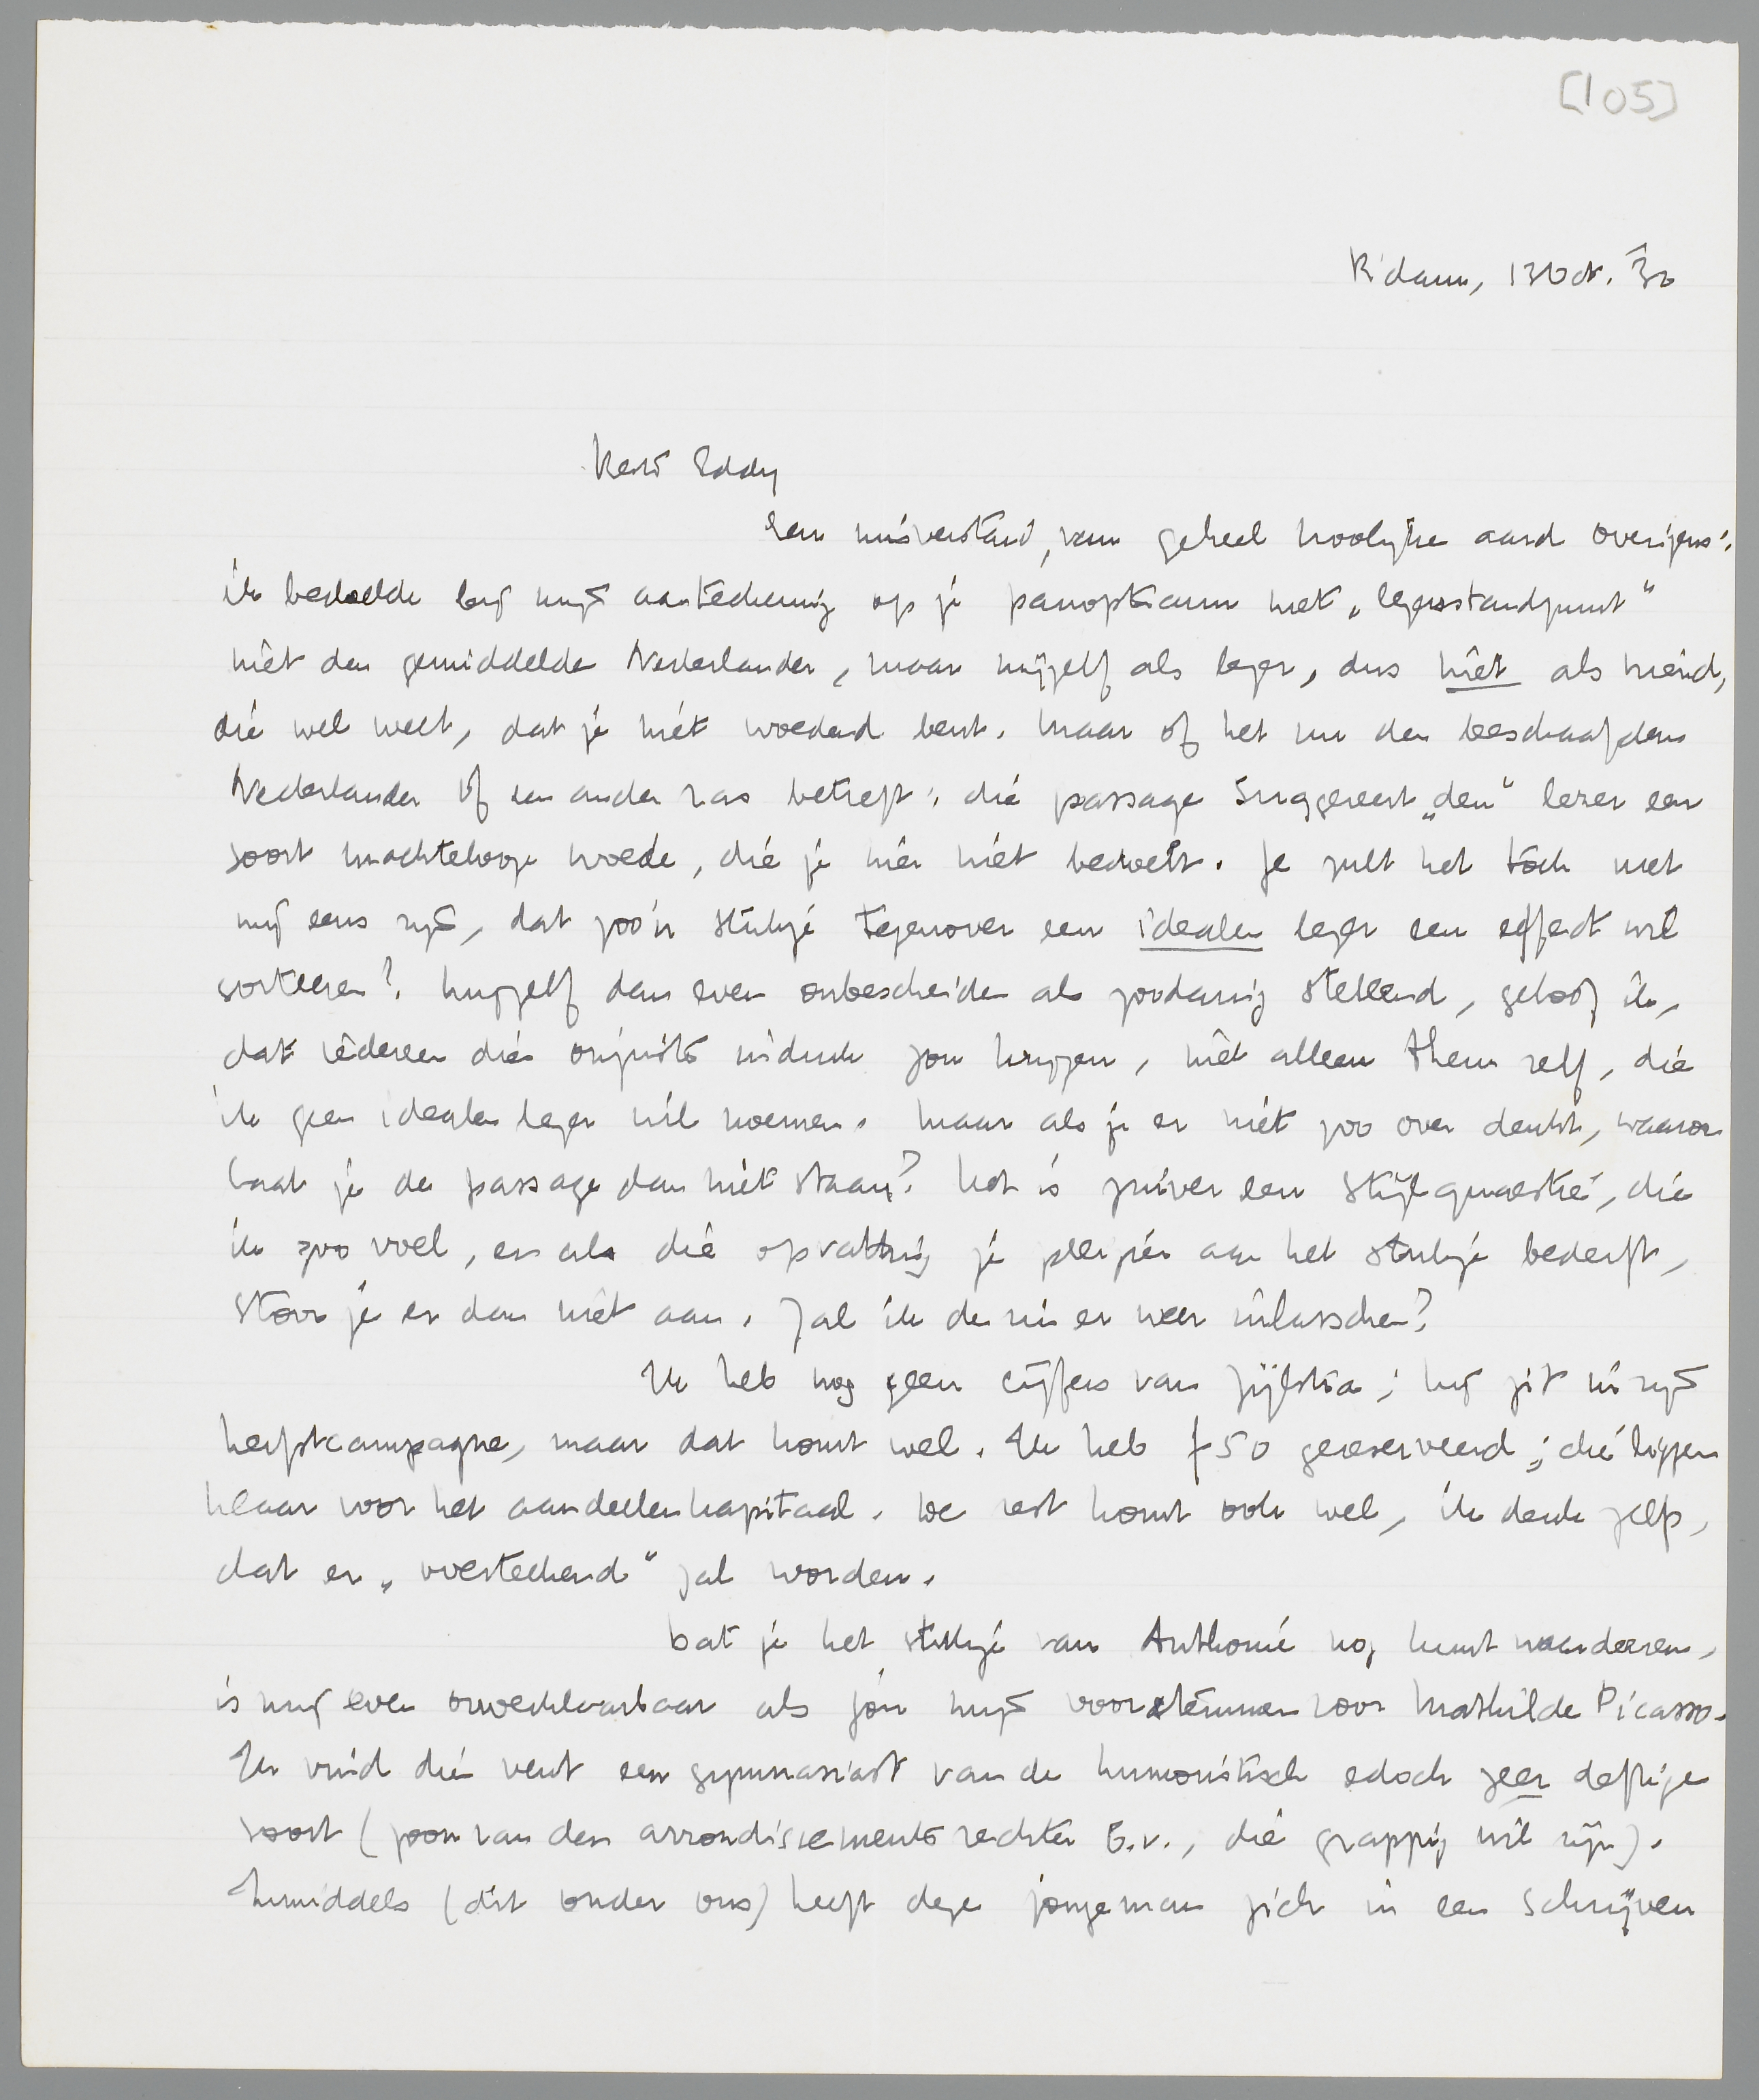 [105]
R'dam, 13 Oct. '32
Beste Eddy
Een misverstand, van geheel vroolijke aard overigens:
ik bedoelde bij mijn aanteekening op je panopticum met „lezersstandpunt"
niet den gemiddelde Nederlander, maar mijzelf als lezer, dus niet als vriend,
die wel weet, dat je niet woedend bent. Maar of het nu den beschaafden
Nederlander of een ander ras betreft: die passage suggereert „den" lezer een
soort machtelooze woede, die je hier niet bedoelt. Je zult het toch met
mij eens zijn, dat zoo'n stukje tegenover een idealen lezer een effect wil
sorteeren? Mijzelf dan even onbescheiden als zoodanig stellend, geloof ik,
dat iedereen dien onjuisten indruk zou krijgen, niet alleen Them zelf, die
ik geen idealen lezer wil noemen. Maar als je er niet zoo over denkt, waarom
laat je de passage dan niet staan? Het is zuiver een stijlquaestie, die
ik zoo voel, en als die opvatting je plezier aan het stukje bederft,
stoor je er dan niet aan. Zal ik de zin er weer inlasschen?
Ik heb nog geen cijfers van Zijlstra; hij zit in zijn
herfstcampagne, maar dat komt wel. Ik heb f 50 gereserveerd; die liggen
klaar voor het aandeelenkapitaal. De rest komt ook wel, ik denk zelfs,
dat er „overteekend" zal worden.
Dat je het stukje van Anthonie nog kunt waardeeren,
is mij even onverklaarbaar als jou mijn voorstemmen voor Mathilde Picasso.
Ik vind dien vent een gymnasiast van de humoristisch edoch zeer deftige
soort (zoon van den arrondissementsrechter b.v., die grappig wil zijn).
Inmiddels (dit onder ons) heeft deze jongeman zich in een schrijven